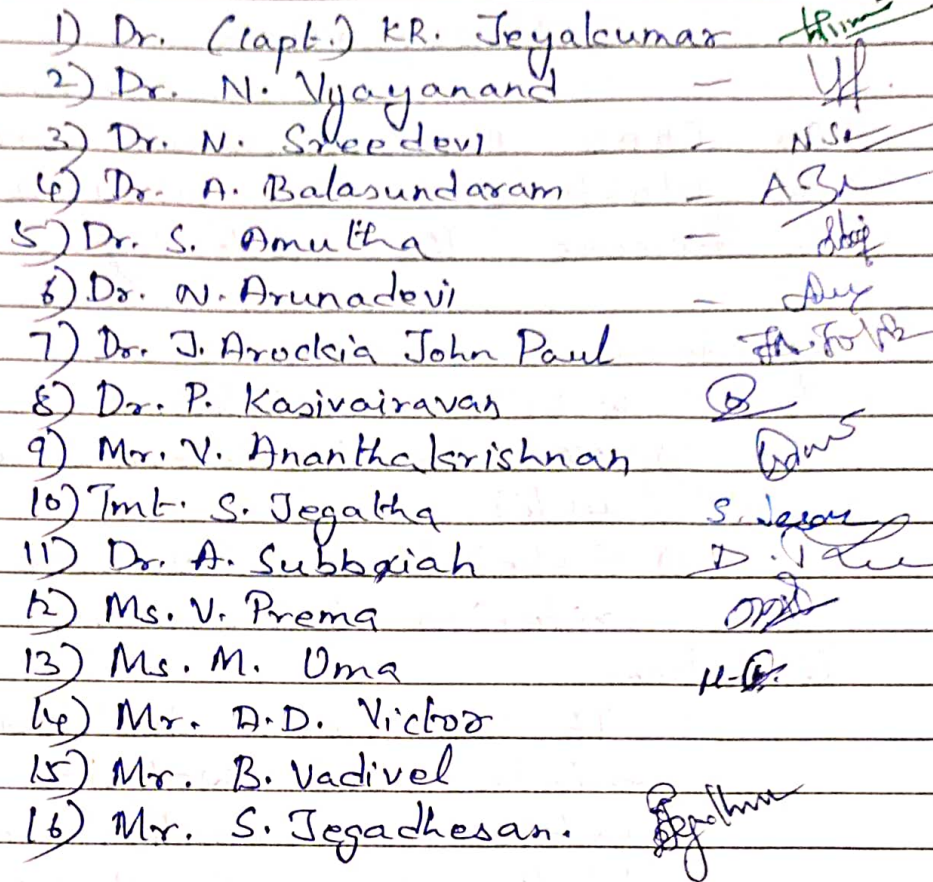 1) Dr. (Capt.) KR. Jeyakumar
2) Dr. N. Vijayanand -
3) Dr. N. Sreedevi - NSr
4) Dr. A. Balasundaram -
5) Dr. S. Amutha -
6) Dr. N. Arunadevi -
7) Dr. J. Arockia John Paul
8) Dr. P. Kasivairavan
9) Mr. V. Ananthakrishnan
10) Tmt. S. Jegatha
11) Dr. A. Subbaiah
12) Ms. V. Prema
13) Ms. M. Uma
14) Mr. A.D. Victor
15) Mr. B. Vadivel
16) Mr. S. Jegadhesan.